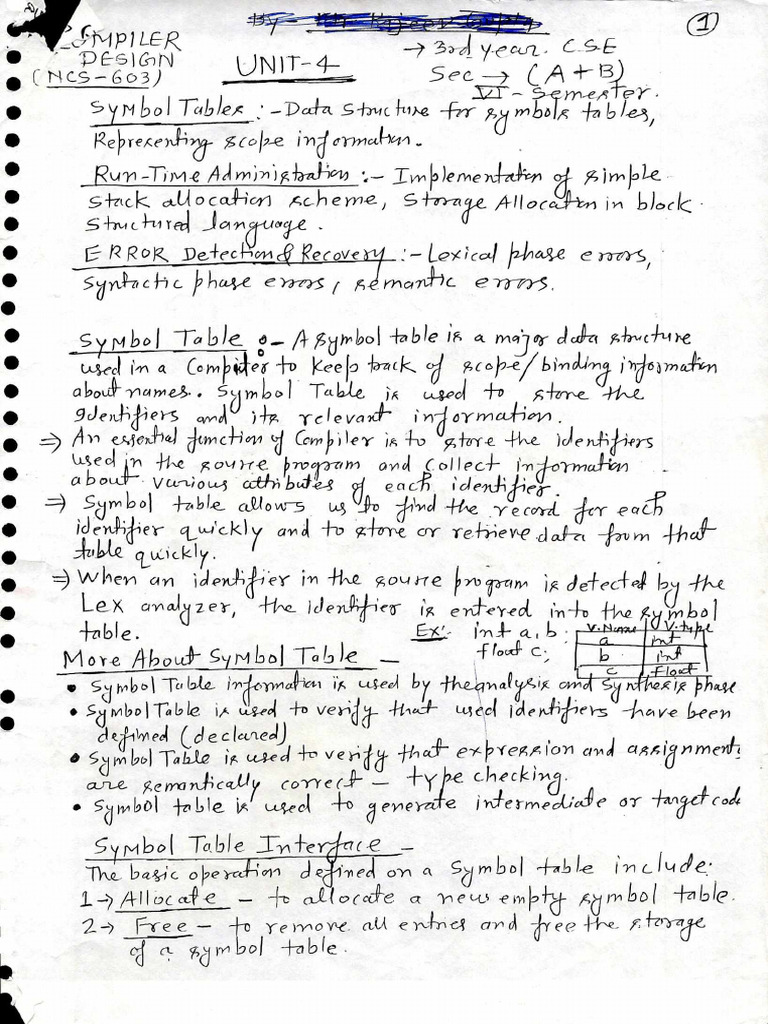 By
1
COMPILER
DESIGN
(NCS-603)
UNIT-4
→ 3rd year. CSE
Sec → (A+B)
VI - Semester.
Symbol Tables :- Data Structure for symbols tables,
Representing scope information.
Run-Time Administration :- Implementation of simple
stack allocation scheme, Storage Allocation in block
structured language.
ERROR Detection & Recovery :- Lexical phase errors,
Syntactic phase errors, semantic errors.
Symbol Table :- A symbol table is a major data structure
used in a Compiler to keep track of scope/binding information
about names. Symbol Table is used to store the
Identifiers and its relevant information.
⇒ An essential function of Compiler is to store the identifiers
used in the source program and collect information
about various attributes of each identifier.
⇒ Symbol table allows us to find the record for each
identifier quickly and to store or retrieve data from that
table quickly.
⇒ When an identifier in the source program is detected by the
Lex analyzer, the identifier is entered into the symbol
table.
Ex: int a, b;
float c;
V.Name V.type
a int
b int
c float
More About Symbol Table -
• Symbol Table information is used by the analysis and Synthesis phase
• Symbol Table is used to verify that used identifiers have been
defined (declared)
• Symbol Table is used to verify that expression and assignments
are semantically correct - type checking.
• Symbol table is used to generate intermediate or target code
Symbol Table Interface -
The basic operation defined on a Symbol table include:
1 → Allocate - to allocate a new empty symbol table.
2 → Free - to remove all entries and free the storage
of a symbol table.